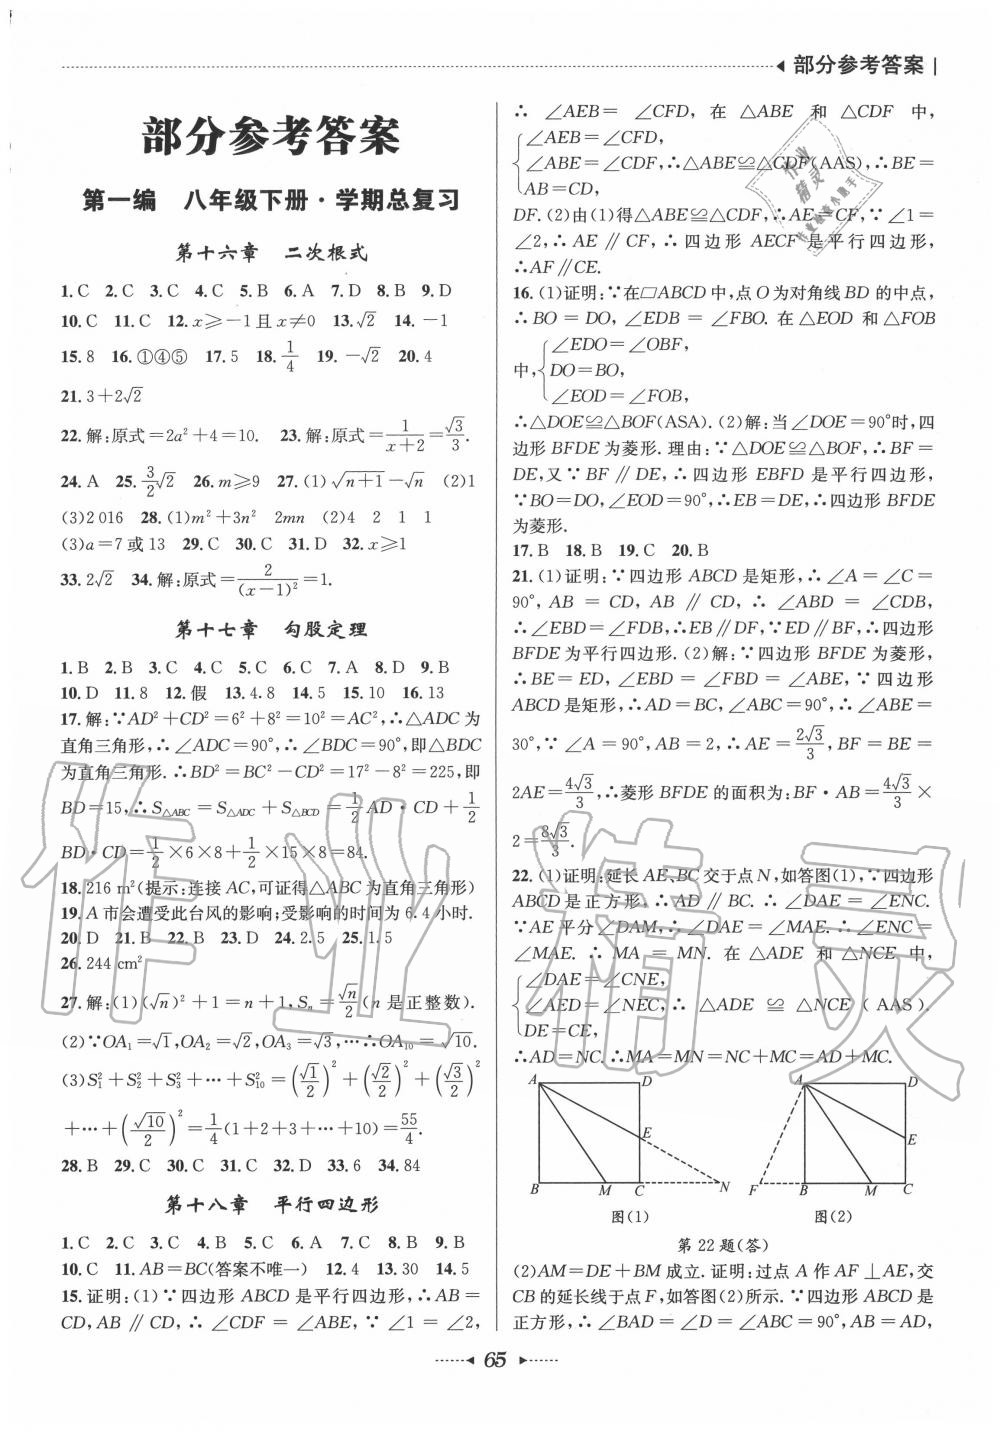 部分参考答案
部分参考答案
第一编 八年级下册·学期总复习
第十六章 二次根式
1.C 2.C 3.C 4.C 5.B 6.A 7.D 8.B 9.D
10.C 11.C 12.x≥-1且x≠0 13.√2 14.-1
15.8 16.①④⑤ 17.5 18.1/4 19.-√2 20.4
21.3+2√2
22.解:原式=2a²+4=10. 23.解:原式=1/(x+2)=√3/3.
24.A 25.3/2√2 26.m≥9 27.(1)√(n+1)-√n (2)1
(3)2 016 28.(1)m²+3n² 2mn (2)4 2 1 1
(3)a=7或13 29.C 30.C 31.D 32.x≥1
33.2√2 34.解:原式=2/(x-1)²=1.
第十七章 勾股定理
1.B 2.B 3.C 4.C 5.C 6.C 7.A 8.D 9.B
10.D 11.8 12.假 13.4.8 14.5 15.10 16.13
17.解:∵AD²+CD²=6²+8²=10²=AC²,∴△ADC为
直角三角形,∴∠ADC=90°,∴∠BDC=90°,即△BDC
为直角三角形.∴BD²=BC²-CD²=17²-8²=225,即
BD=15,∴S△ABC=S△ADC+S△BCD=1/2 AD·CD+1/2
BD·CD=1/2×6×8+1/2×15×8=84.
18.216 m²(提示:连接AC,可证得△ABC为直角三角形)
19.A市会遭受此台风的影响;受影响的时间为6.4小时.
20.D 21.B 22.B 23.D 24.2.5 25.1.5
26.244 cm²
27.解:(1)(√n)²+1=n+1,Sₙ=√n/2(n是正整数).
(2)∵OA₁=√1,OA₂=√2,OA₃=√3,…∴OA₁₀=√10.
(3)S₁²+S₂²+S₃²+…+S₁₀²=(√1/2)²+(√2/2)²+(√3/2)²
+…+(√10/2)²=1/4(1+2+3+…+10)=55/4.
28.B 29.C 30.C 31.C 32.D 33.6 34.84
第十八章 平行四边形
1.C 2.C 3.C 4.B 5.B 6.D 7.C 8.B 9.B
10.C 11.AB=BC(答案不唯一) 12.4 13.30 14.5
15.证明:(1)∵四边形ABCD是平行四边形,∴AB=
CD,AB∥CD,∴∠CDF=∠ABE,∵∠1=∠2,
∴∠AEB=∠CFD,在△ABE和△CDF中,
∠AEB=∠CFD,
∠ABE=∠CDF,∴△ABE≌△CDF(AAS),∴BE=
AB=CD,
DF.(2)由(1)得△ABE≌△CDF,∴AE=CF,∵∠1=
∠2,∴AE∥CF,∴四边形AECF是平行四边形,
∴AF∥CE.
16.(1)证明:∵在□ABCD中,点O为对角线BD的中点,
∴BO=DO,∠EDB=∠FBO.在△EOD和△FOB
∠EDO=∠OBF,
中,DO=BO,
∠EOD=∠FOB,
∴△DOE≌△BOF(ASA).(2)解:当∠DOE=90°时,四
边形BFDE为菱形.理由:∵△DOE≌△BOF,∴BF=
DE,又∵BF∥DE,∴四边形EBFD是平行四边形,
∵BO=DO,∠EOD=90°,∴EB=DE,∴四边形BFDE
为菱形.
17.B 18.B 19.C 20.B
21.(1)证明:∵四边形ABCD是矩形,∴∠A=∠C=
90°,AB=CD,AB∥CD,∴∠ABD=∠CDB,
∴∠EBD=∠FDB,∴EB∥DF,∵ED∥BF,∴四边形
BFDE为平行四边形.(2)解:∵四边形BFDE为菱形,
∴BE=ED,∠EBD=∠FBD=∠ABE,∵四边形
ABCD是矩形,∴AD=BC,∠ABC=90°,∴∠ABE=
30°,∵∠A=90°,AB=2,∴AE=2√3/3,BF=BE=
2AE=4√3/3,∴菱形BFDE的面积为:BF·AB=4√3/3×
2=8√3/3.
22.(1)证明:延长AE、BC交于点N,如答图(1),∵四边形
ABCD是正方形,∴AD∥BC.∴∠DAE=∠ENC.
∵AE平分∠DAM,∴∠DAE=∠MAE.∴∠ENC=
∠MAE.∴MA=MN.在△ADE和△NCE中,
∠DAE=∠CNE,
∠AED=∠NEC,∴△ADE≌△NCE(AAS).
DE=CE,
∴AD=NC.∴MA=MN=NC+MC=AD+MC.
A D E B M C N
A D E F B M C
图(1) 图(2)
第22题(答)
(2)AM=DE+BM成立.证明:过点A作AF⊥AE,交
CB的延长线于点F,如答图(2)所示.∵四边形ABCD是
正方形,∴∠BAD=∠D=∠ABC=90°,AB=AD,
65
作业精灵
作业
精灵